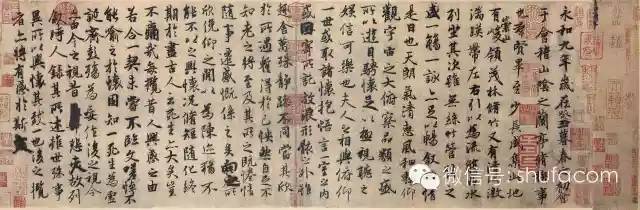 永和九年歲在癸丑暮春之初會
于會稽山陰之蘭亭脩稧事
也羣賢畢至少長咸集此地
有崇山峻領茂林脩竹又有清流激
湍暎帶左右引以為流觴曲水
列坐其次雖無絲竹管弦之
盛一觴一詠亦足以暢敘幽情
是日也天朗氣清惠風和暢仰
觀宇宙之大俯察品類之盛
所以遊目騁懷足以極視聽之
娛信可樂也夫人之相與俯仰
一世或取諸懷抱悟言一室之內
或因寄所託放浪形骸之外雖
趣舍萬殊靜躁不同當其欣
於所遇蹔得於己怏然自足不
知老之將至及其所之既惓情
隨事遷感慨係之矣向之所
欣俛仰之間以為陳迹猶不
能不以之興懷況脩短隨化終
期於盡古人云死生亦大矣豈
不痛哉每攬昔人興感之由
若合一契未嘗不臨文嗟悼不
能喻之於懷固知一死生為虛
誕齊彭殤為妄作後之視今
亦由今之視昔悲夫故列
敘時人錄其所述雖世殊事
異所以興懷其致一也後之攬
者亦將有感於斯文
微信号: shufacom